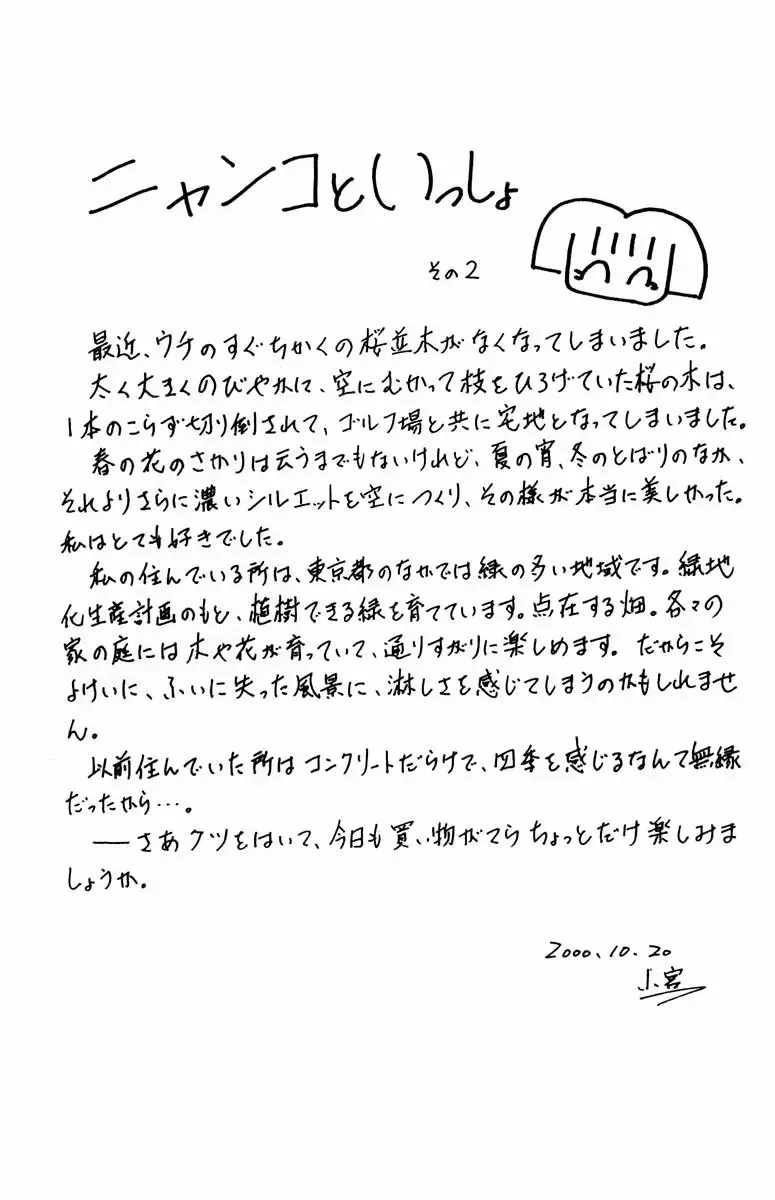 ニャンコといっしょ
その2
最近、ウケのすぐちかくの桜並木がなくなってしまいました。
太く大きくのびやかに、空にむかって枝をひろげていた桜の木は、
1本のこらず切り倒されて、ゴルフ場と共に宅地となってしまいました。
春の花のさかりは云うまでもないけれど、夏の宵、冬のとばりのなか、
それよりさらに濃いシルエットを空につくり、その様が本当に美しかった。
私はとても好きでした。
私の住んでいる所は、東京都のなかでは緑の多い地域です。緑地
化生産計画のもと、植樹できる緑を育てています。点在する畑。各々の
家の庭には木や花が育っていて、通りすがりに楽しめます。だからこそ
よけいに、ふいに失った風景に、淋しさを感じてしまうのかもしれませ
ん。
以前住んでいた所はコンクリートだらけで、四季を感じるなんて無縁
だったから…。
──さあクツをはいて、今日も買い物がてらちょっとだけ楽しみま
しょうか。
2000.10.20
小宮